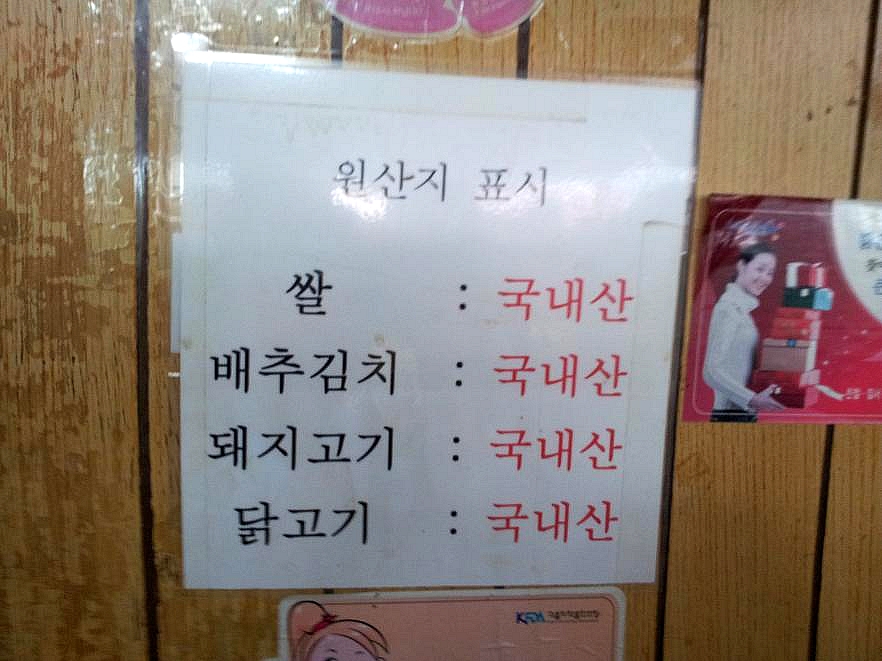 원산지 표시
쌀 : 국내산
배추김치 : 국내산
돼지고기 : 국내산
닭고기 : 국내산
KFDA